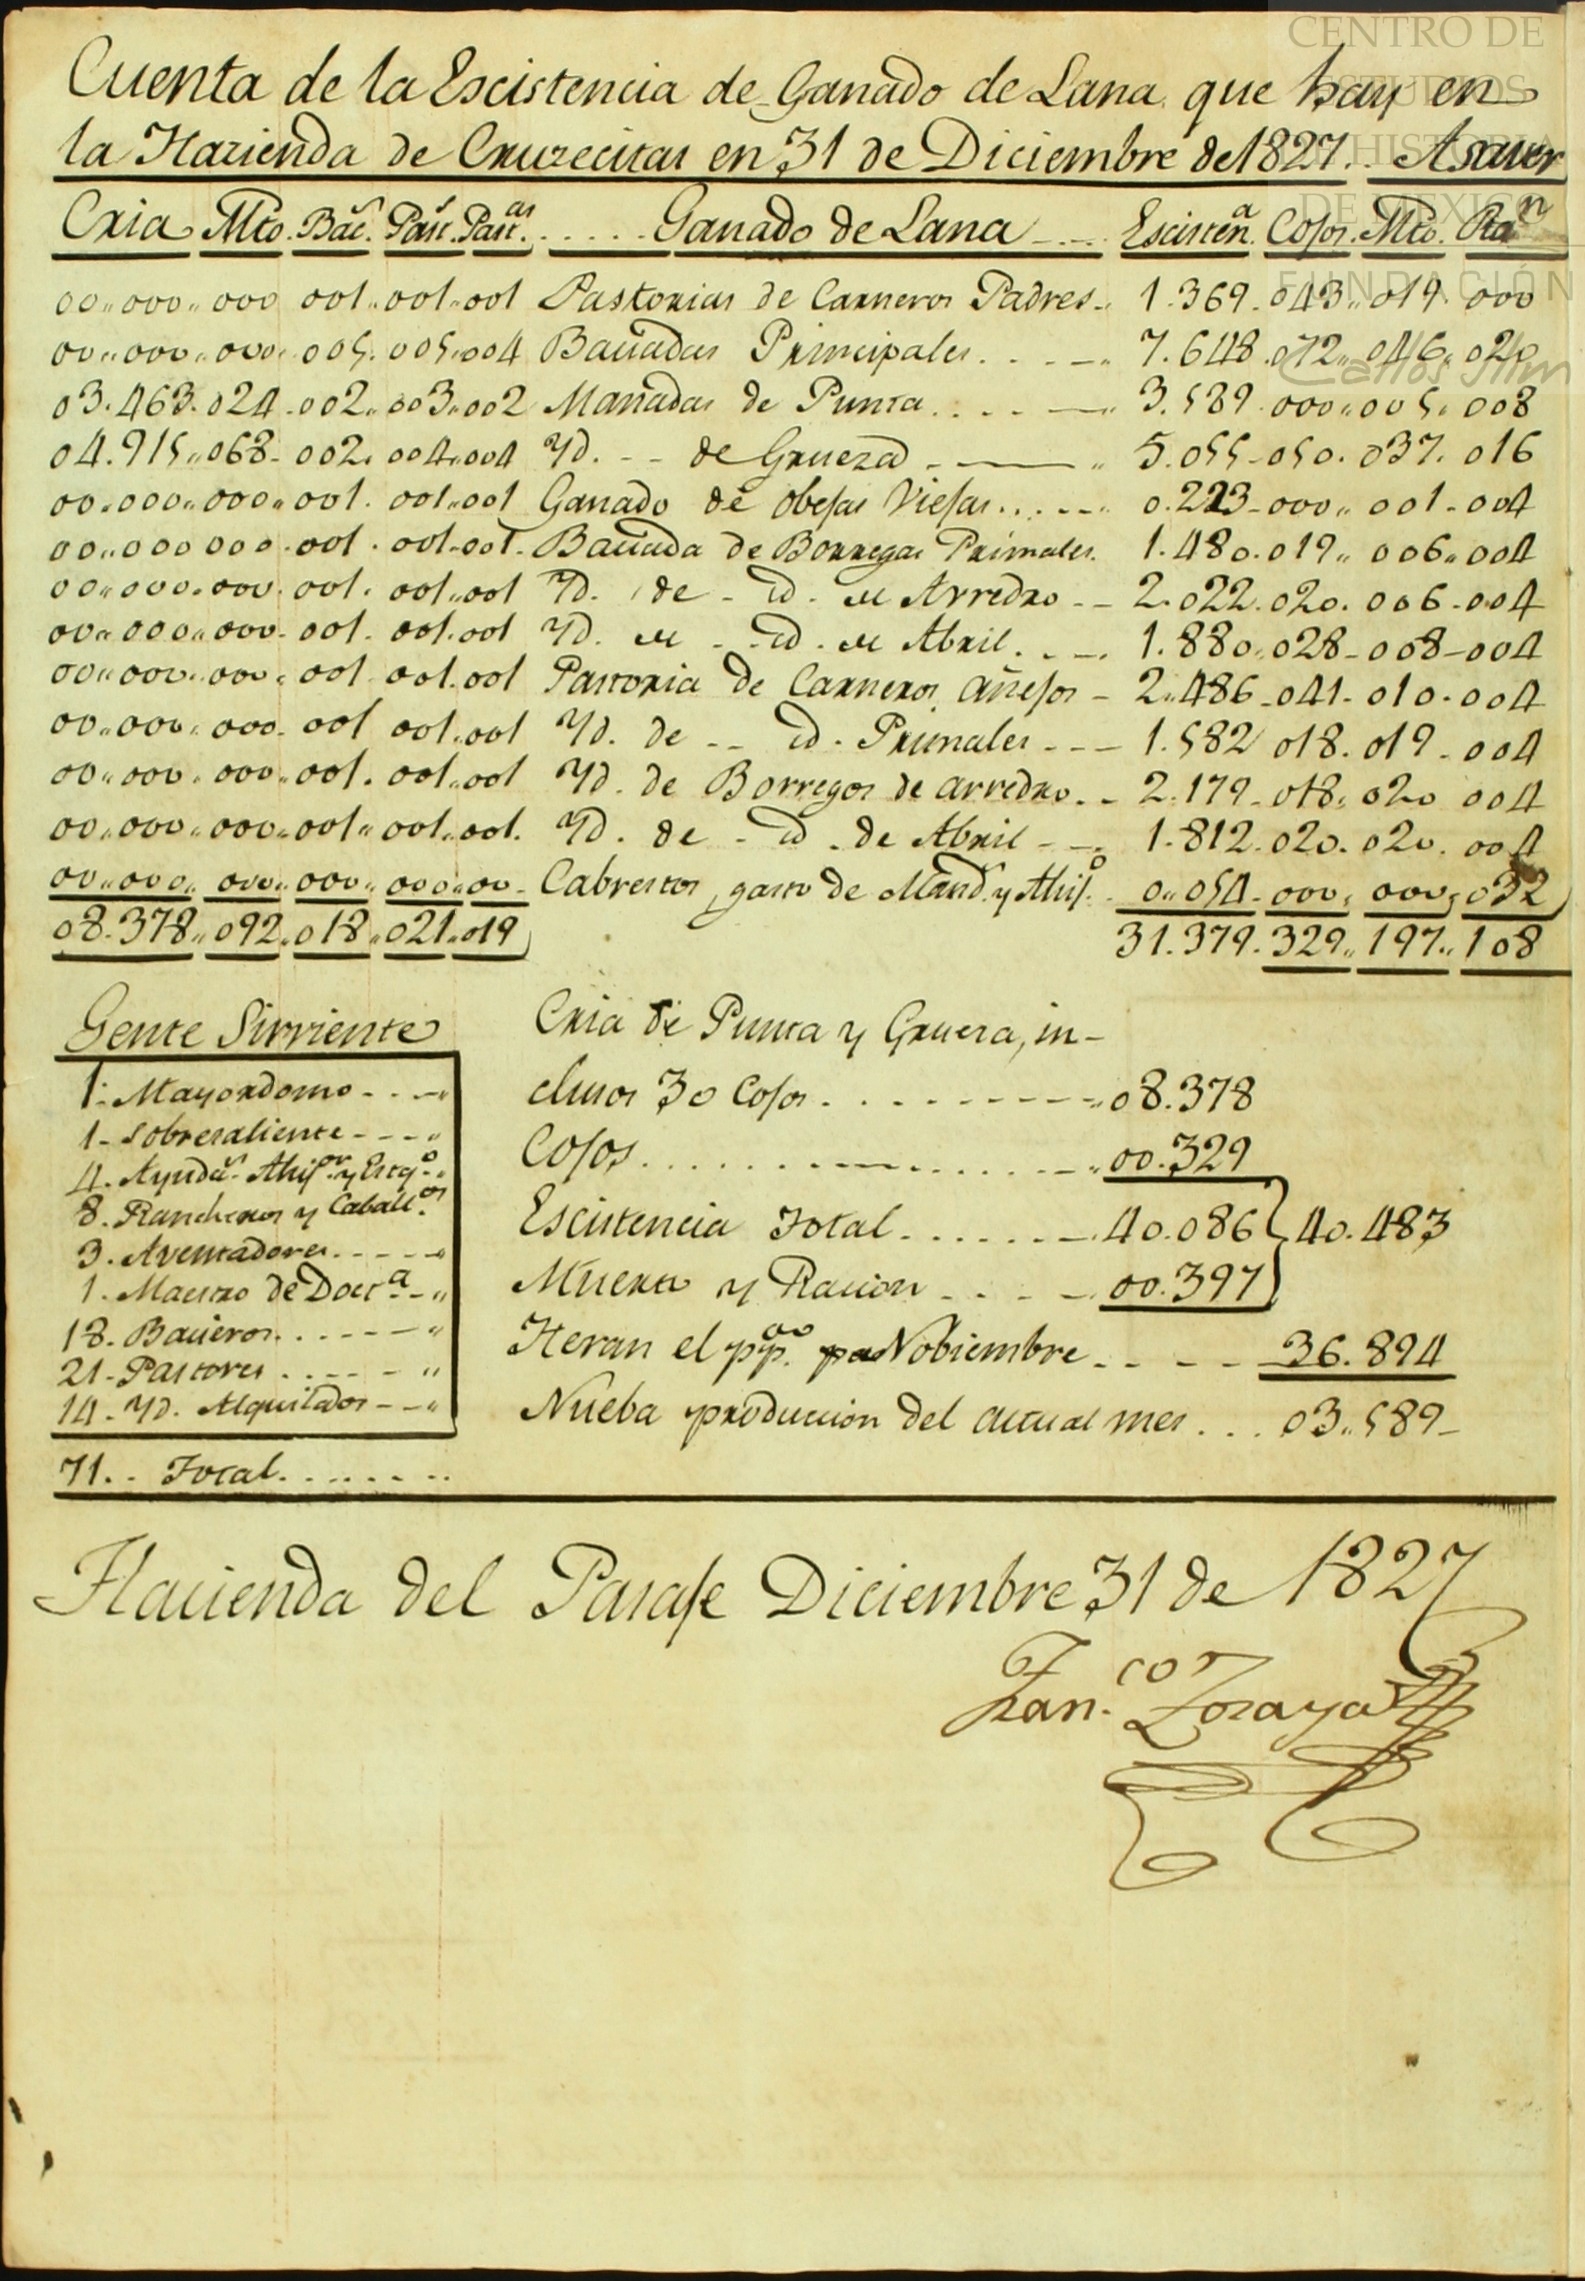 CENTRO DE
ESTUDIOS
DE HISTORIA
DE MEXICO
FUNDACIÓN
Carlos Slim
Cuenta de la Escistencia de Ganado de Lana que hay en
la Hazienda de Cruzecitas en 31 de Diciembre de 1827. A saver
Cria Mto. Bac.s Past.s Past.as ..... Ganado de Lana ---- Escisten.a Cojos. Mto. Ra.n
00,,000,,000 001,,001,,001 Pastorias de Carneros Padres.. 1.369.043,,019.000
00,,000,,000.005.005,,004 Baciadas Principales. . . . -- 7.648.072,,046,,020
03.463.024.002,,003,,002 Manadas de Punta. . . . -- 3.589.000,,005,,008
04.915,,068-002.004,,004 Yd. - - de Grueza ------ 5.055-050.037.016
00.000,,000,,001.001,,001 Ganado de obejas Viejas..... 0.223-000,,001-004
00,,000 000.001.001-001- Baciada de Borregas Primales. 1.480.019,,006,,004
00,,000.000.001.001,,001 Yd. de - id. de Arredro - - 2.022.020.006-004
00,,000,,000-001.001.001 Yd. de - id. de Abril. - -. 1.880.028-008-004
00,,000,,000.001.001.001 Pastoria de Carneros añejos - 2.486-041-010-004
00,,000,,000.001 001.001 Yd. de - - id. Primales - - - 1.582 018.019-004
00,,000.000,,001.001,,001 Yd. de Borregos de arredro. - 2.179-018.020 004
00,,000,,000,,001,,001,,001. Yd. de - id. de Abril - -. 1.812.020.020.004
00,,000,,000,,000,,000,,00- Cabrestos, gasto de Mand.s y Ahij.o 0,,054-000,,000,,032
08.378,,092,,018,,021,,019 31.379.329,,197,,108
Gente Sirviente
1. Mayordomo - - - -
1- Sobresaliente - - - -
4. Ayud.s Ahij.or y Escq.o
8. Rancheros y Caball.os
3. Aventadores. - - - -
1. Maestro de Doct.a - -
18. Bacieros. . - - - -
21- Pastores . . - - -
14- Yd. Alquilados - - -
71. . Total. . . . . . . .
Cria de Punta y Grueza, in-
clusos 30 Cojos. . . . . - - - - 08.378
Cojos. . . . . . . . . . . . . . - 00.329
Escistencia Total. . . . . . - 40.086 40.483
Muerto y Racion - . - . - 00.397
Heran el pp.do Nobiembre. - . - - 36.894
Nueba produccion del actual mes . . . 03.,589-
Hacienda del Pasaje Diciembre 31 de 1827
Fran.co Zoraya